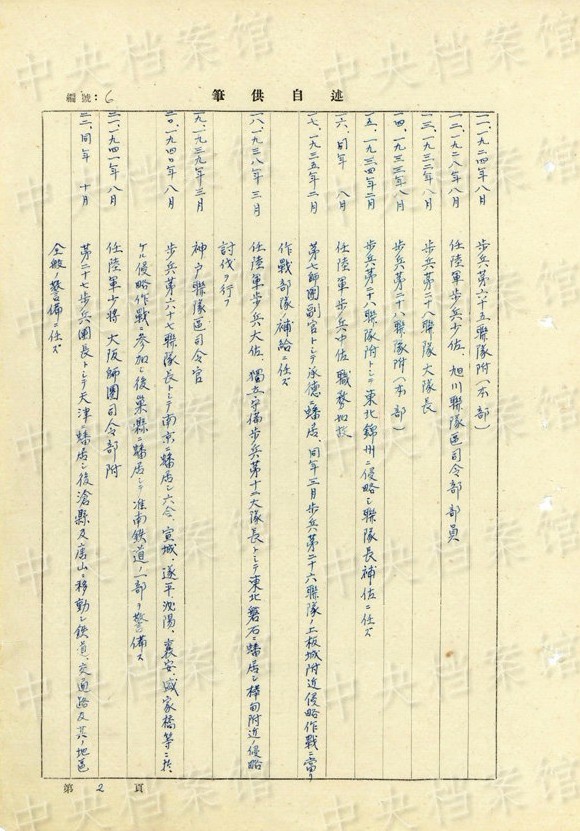 述自供筆
編號：6
一一、一九二四年八月　歩兵第六十五聯隊附（本部）
一二、一九二八年八月　任陸軍歩兵少佐、旭川聯隊區司令部部員
一三、一九三二年八月　歩兵第二十八聯隊大隊長
一四、一九三三年八月　歩兵第二十八聯隊附（本部）
一五、一九三四年二月　歩兵第二十八聯隊附トシテ東北錦州ニ侵略シ聯隊長補佐ニ任ズ
一六、同年　八月　任陸軍歩兵中佐　職務如故
一七、一九三五年二月　第七師團副官トシテ承德ニ蟠居、同年三月歩兵第二十六聯隊ノ上板城附近侵略作戰ニ當リ
作戰部隊ノ補給ニ任ズ
一八、一九三八年三月　任陸軍歩兵大佐、獨立守備歩兵第十一大隊長トシテ東北磐石ニ蟠居シ樺甸附近ノ侵略
討伐ヲ行フ
一九、一九三九年三月　神戸聯隊區司令官
二〇、一九四〇年八月　歩兵第六十七聯隊長トシテ南京ニ蟠居シ六合、宣城、遂平、沈陽、襄安、盛家橋等ニ於
ケル侵略作戰ニ參加シ後巢縣ニ蟠居シテ淮南鉄道ノ一部ヲ警備ス
二一、一九四一年八月　任陸軍少將　大阪師團司令部附
二二、同年　十月　第二十七歩兵團長トシテ天津ニ蟠居シ後滄縣及唐山ニ移動シ鉄道、交通路及其ノ地區
全般ノ警備ニ任ズ
第 2 頁
中央档案馆